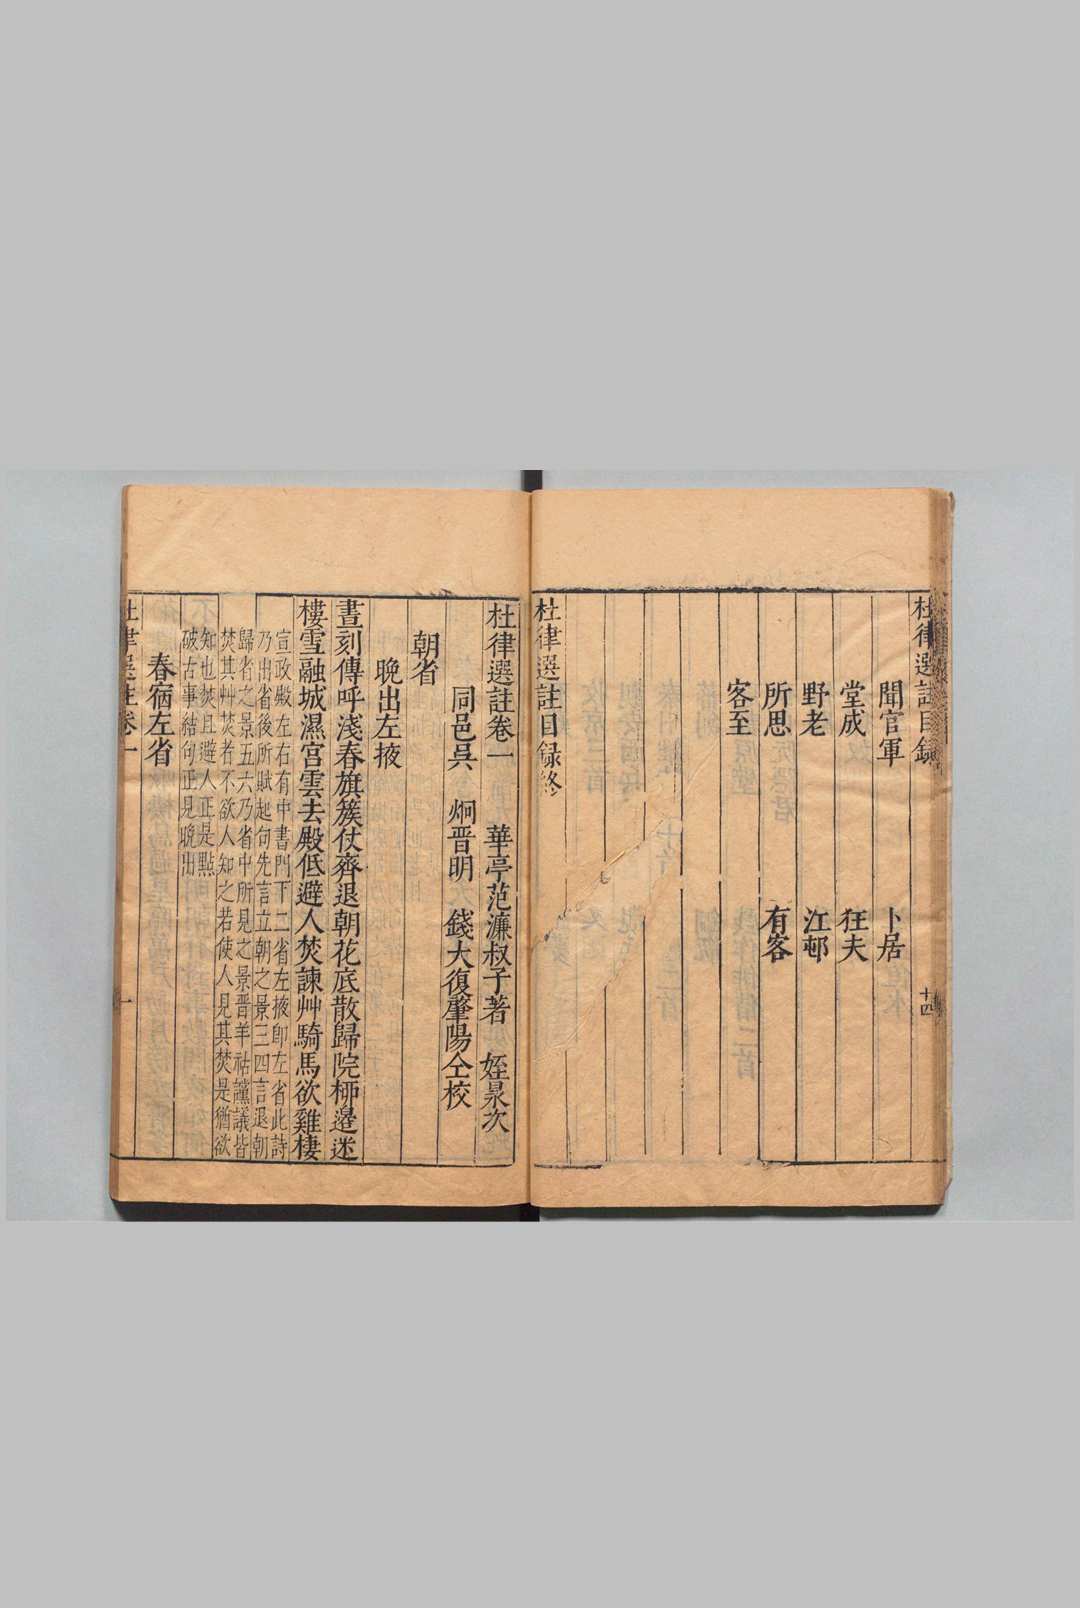 杜律選註目錄
十四
聞官軍
卜居
堂成
狂夫
野老
江邨
所思
有客
客至
杜律選註目録終
杜律選註卷一
華亭范濂叔子著
姪㫤次
同邑吳
炯晋明
錢大復肇陽仝校
朝省
晚出左掖
晝刻傳呼淺春旗簇仗齊退朝花底散歸院桺邉迷
樓雪融城濕宮雲去殿低避人焚諫艸騎馬欲雞棲
宣政殿左右有中書門下二省左掖卽左省此詩
乃出省後所賦起句先言立朝之景三四言退朝
歸省之景五六乃省中所見之景晋羊祜讜議皆
焚其艸焚者不欲人知之若使人見其焚是猶欲
知也焚且避人正是點
破古事結句正見晚出
春宿左省
杜律選註卷一
一